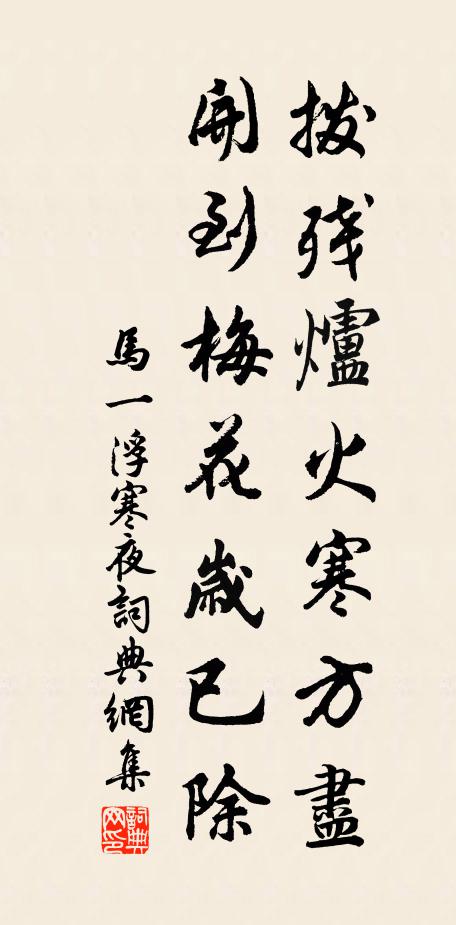 拨残爐火寒方盡
開到梅花歲已除
馬一浮寒夜詞典網集
詞典
网印